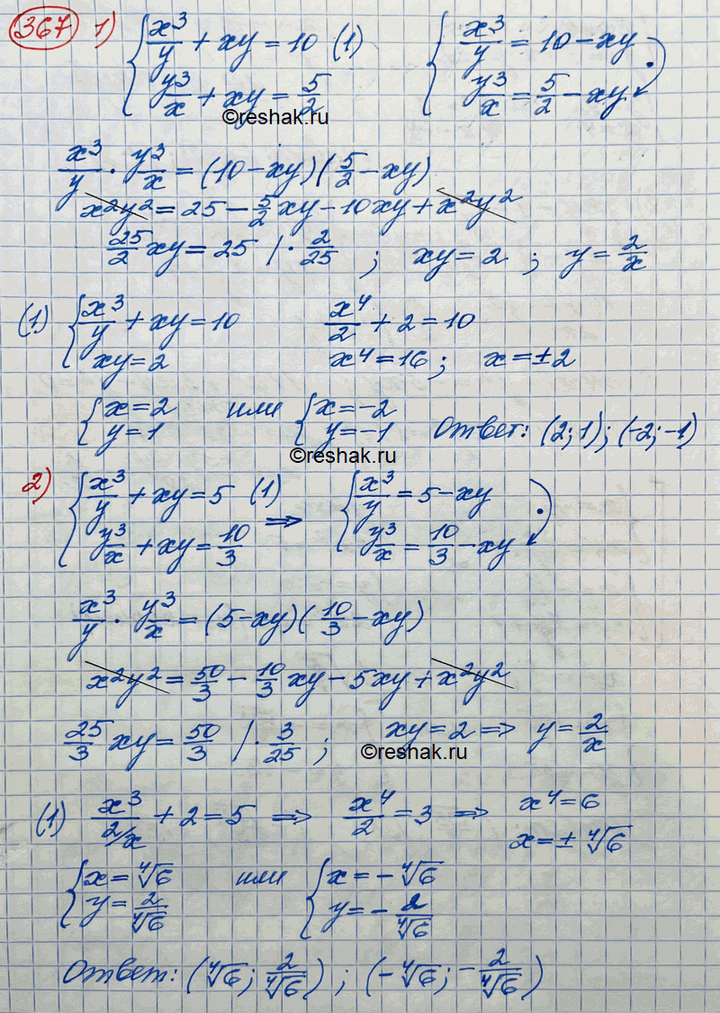 367 1) { x³/y + xy = 10 (1)    { x³/y = 10 - xy
{ y³/x + xy = 5/2    { y³/x = 5/2 - xy ·
©reshak.ru
x³/y · y³/x = (10 - xy)(5/2 - xy)
x²y² = 25 - 5/2 xy - 10xy + x²y²
25/2 xy = 25 | · 2/25 ; xy = 2 ; y = 2/x
(1) { x³/y + xy = 10    x⁴/2 + 2 = 10
{ xy = 2    x⁴ = 16 ; x = ±2
{ x = 2 или { x = -2
{ y = 1    { y = -1    Ответ: (2; 1); (-2; -1)
©reshak.ru
2) { x³/y + xy = 5 (1) ⇒ { x³/y = 5 - xy
{ y³/x + xy = 10/3    { y³/x = 10/3 - xy ·
x³/y · y³/x = (5 - xy)(10/3 - xy)
x²y² = 50/3 - 10/3 xy - 5xy + x²y²
25/3 xy = 50/3 | · 3/25 ; xy = 2 ⇒ y = 2/x
©reshak.ru
(1) x³/(2/x) + 2 = 5 ⇒ x⁴/2 = 3 ⇒ x⁴ = 6
x = ± ⁴√6
{ x = ⁴√6 или { x = - ⁴√6
{ y = 2/⁴√6    { y = - 2/⁴√6
Ответ: (⁴√6; 2/⁴√6) ; (-⁴√6; - 2/⁴√6)